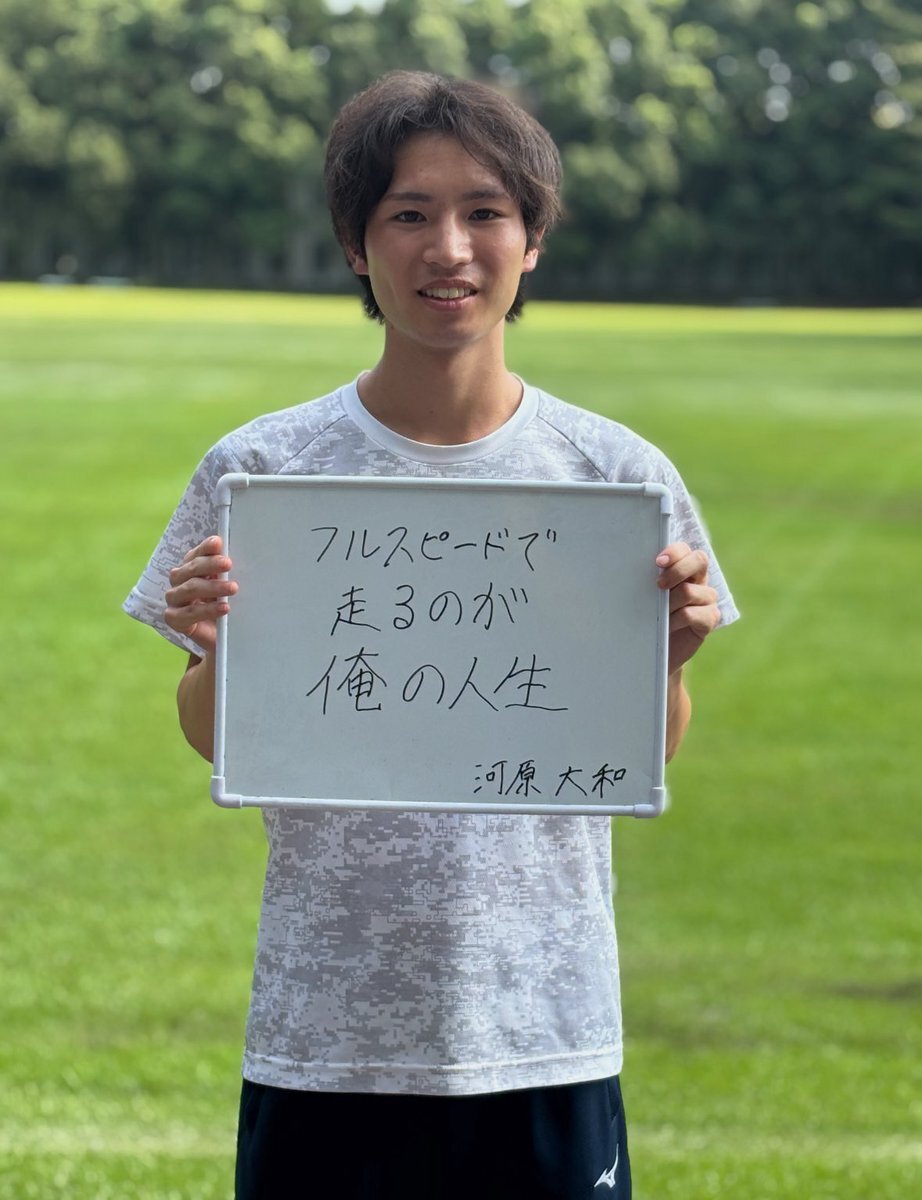 フルスピードで
走るのが
俺の人生
河原 大和